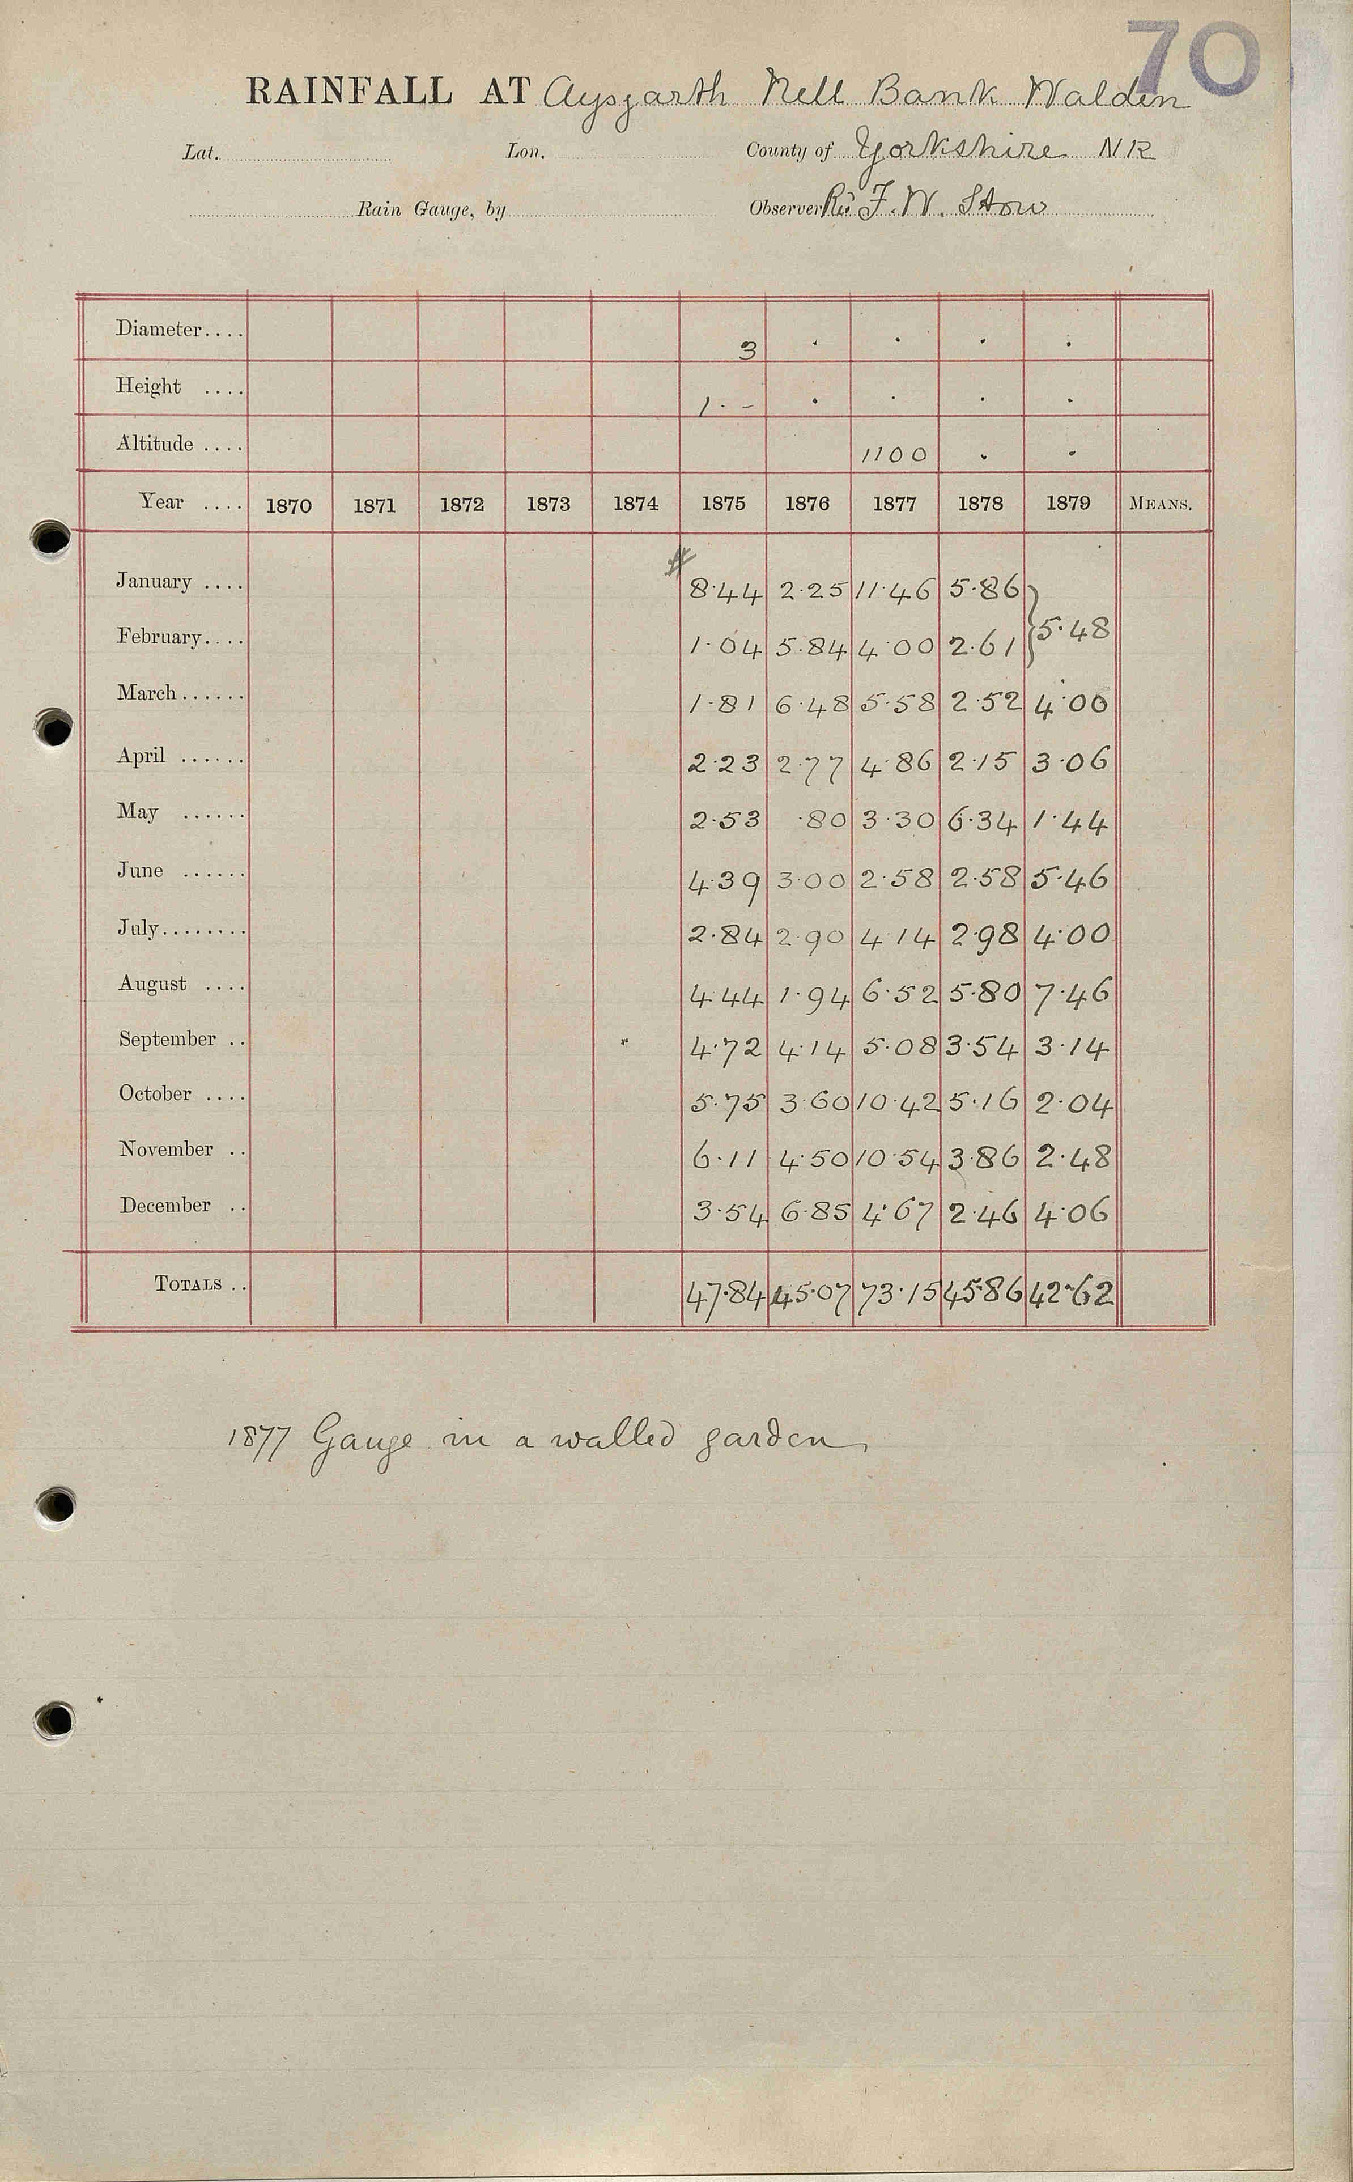 70
RAINFALL AT Aysgarth Nell Bank Walden
Lat. Lon. County of Yorkshire NR
Rain Gauge, by Observer Rev F. W. Stow
Diameter.... 3 . . . .
Height .... 1.- . . . .
Altitude .... 1100 . .
Year .... 1870 1871 1872 1873 1874 1875 1876 1877 1878 1879 MEANS.
January .... 8.44 2.25 11.46 5.86
February.... 1.04 5.84 4.00 2.61 } 5.48
March...... 1.81 6.48 5.58 2.52 4.00
April ...... 2.23 2.77 4.86 2.15 3.06
May ...... 2.53 .80 3.30 6.34 1.44
June ...... 4.39 3.00 2.58 2.58 5.46
July........ 2.84 2.90 4.14 2.98 4.00
August .... 4.44 1.94 6.52 5.80 7.46
September .. 4.72 4.14 5.08 3.54 3.14
October .... 5.75 3.60 10.42 5.16 2.04
November .. 6.11 4.50 10.54 3.86 2.48
December .. 3.54 6.85 4.67 2.46 4.06
TOTALS .. 47.84 45.07 73.15 45.86 42.62
1877 Gauge in a walled garden